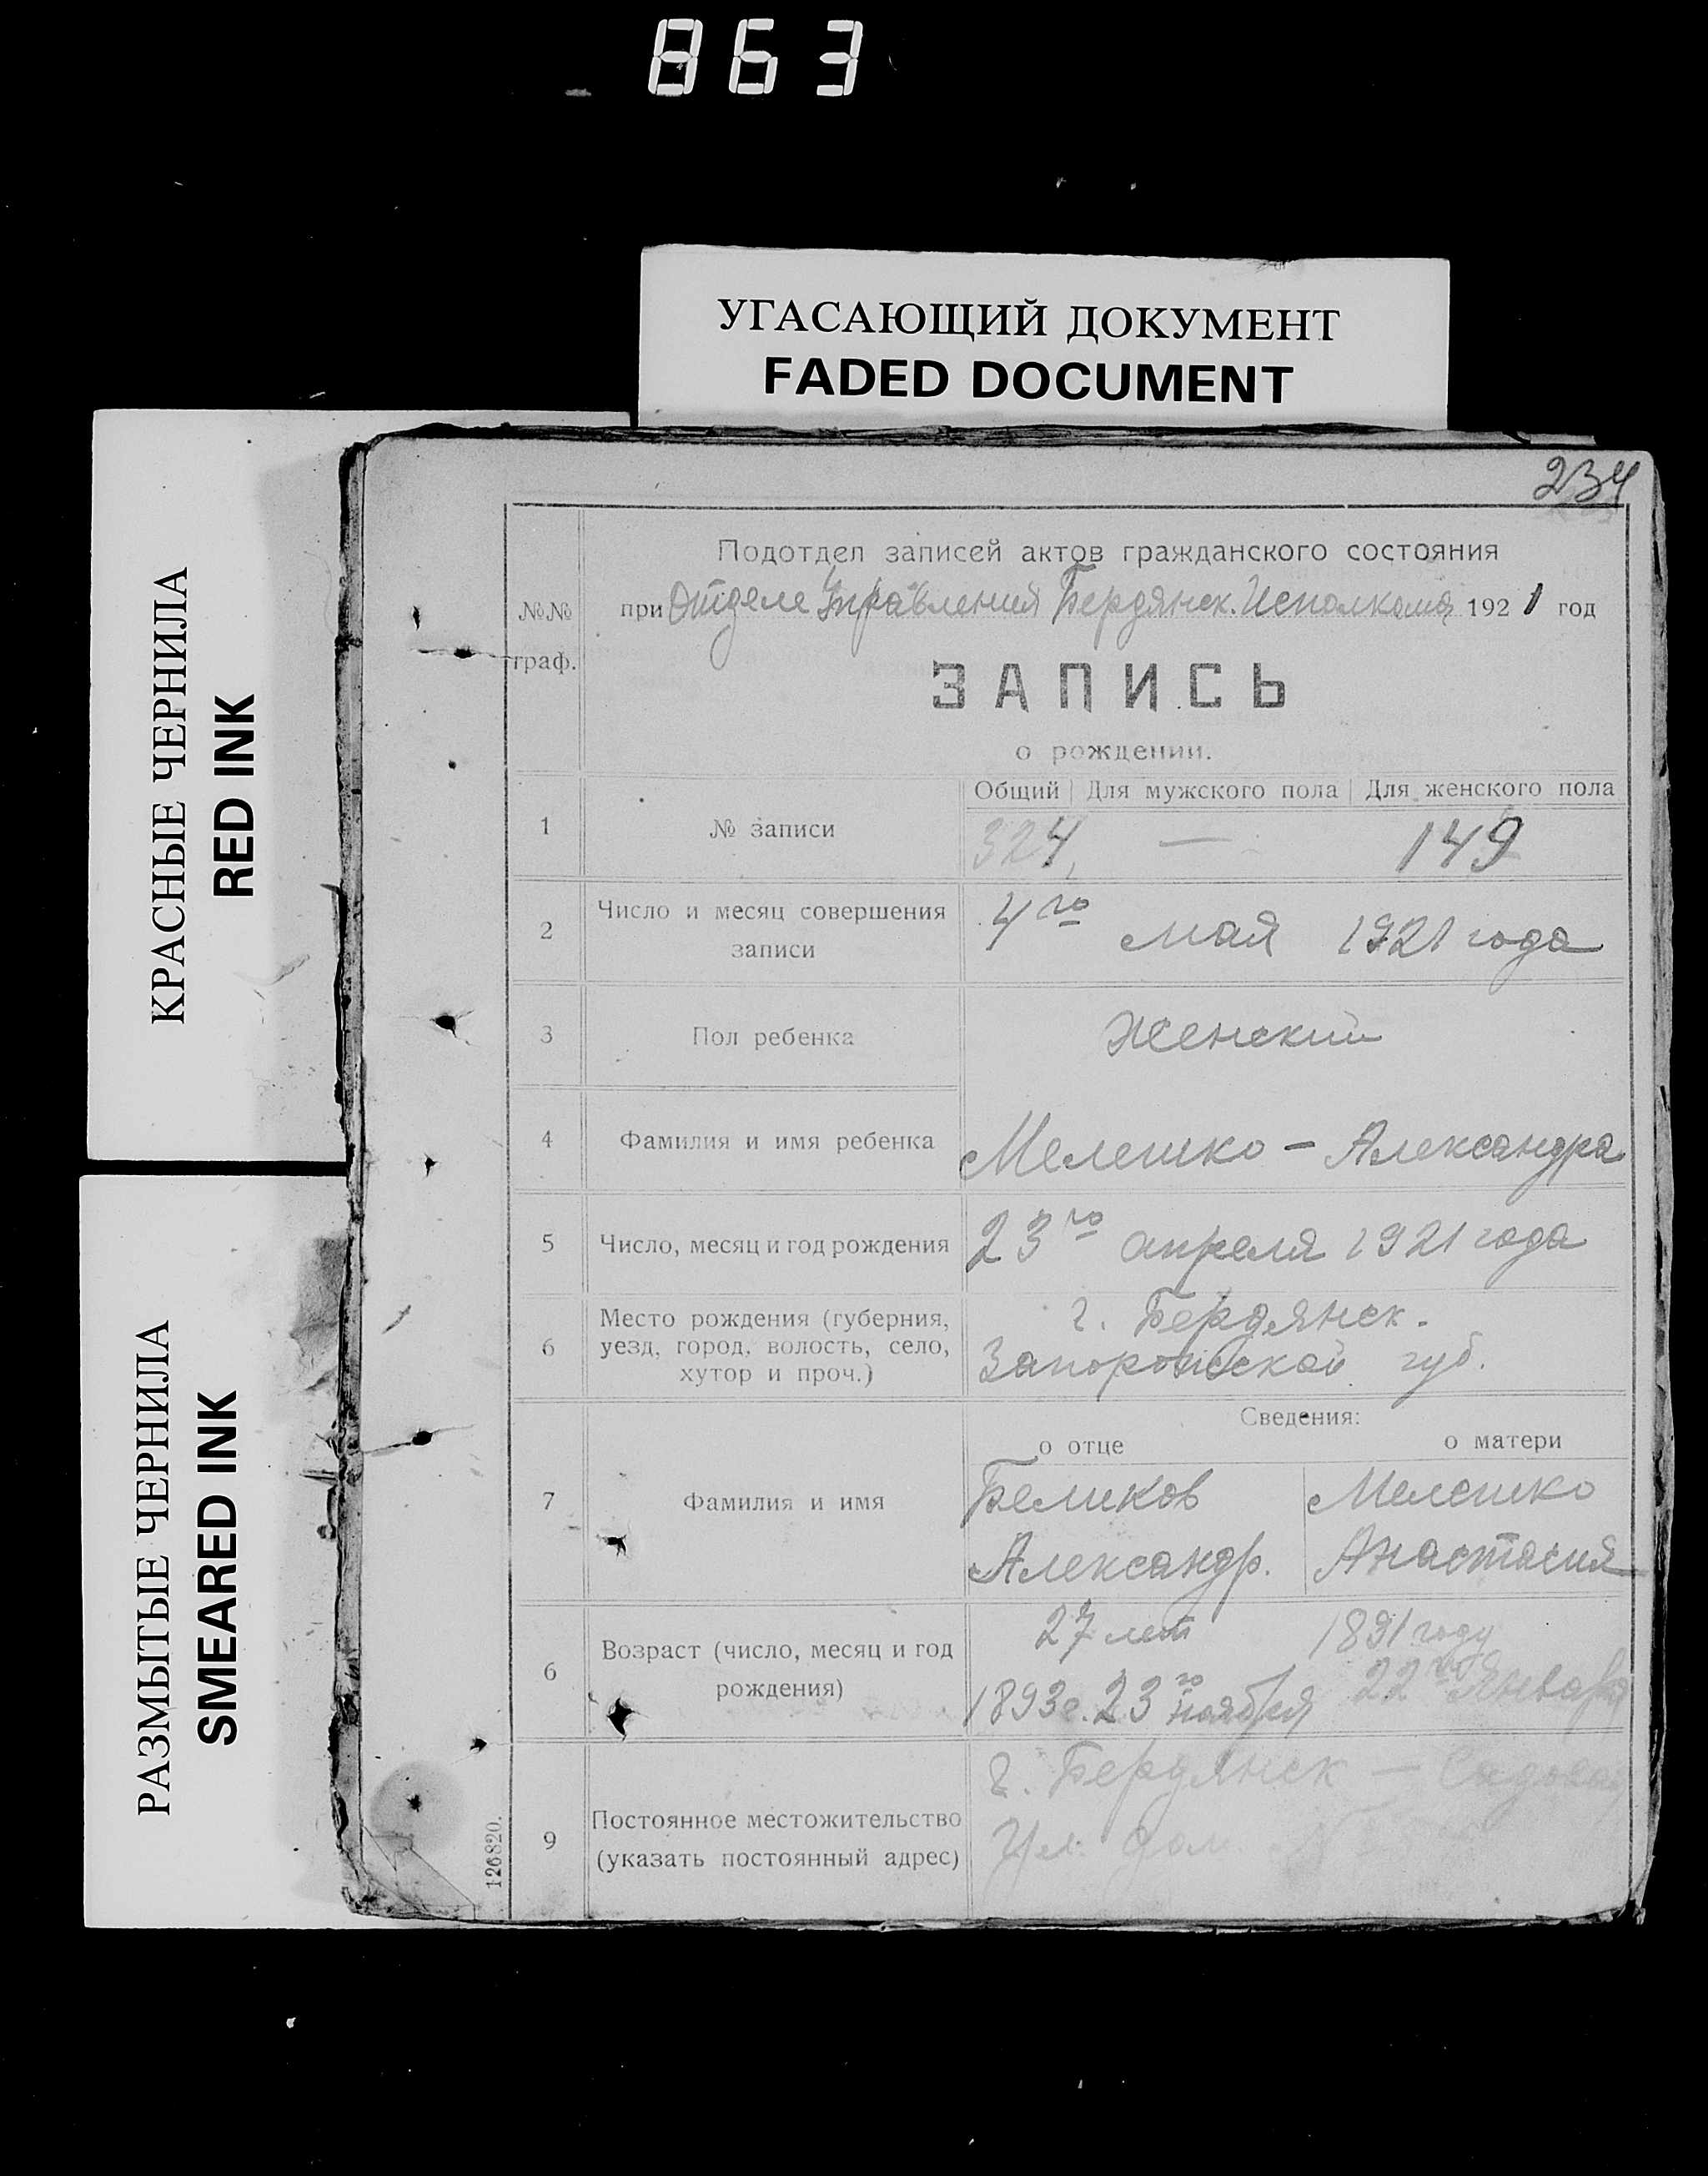 863
УГАСАЮЩИЙ ДОКУМЕНТ
FADED DOCUMENT
КРАСНЫЕ ЧЕРНИЛА
RED INK
РАЗМЫТЫЕ ЧЕРНИЛА
SMEARED INK
234
№№
граф.
Подотдел записей актов гражданского состояния
при Отделе Управления Бердянск. Исполкома 1921 год
ЗАПИСЬ
о рождении.
Общий Для мужского пола Для женского пола
1 № записи 324, — 149
2 Число и месяц совершения
записи
4го мая 1921 года
3 Пол ребенка Женский
4 Фамилия и имя ребенка Мелешко - Александра
5 Число, месяц и год рождения 23го апреля 1921 года
6 Место рождения (губерния,
уезд, город, волость, село,
хутор и проч.)
г. Бердянск.
Запорожской губ.
Сведения:
о отце о матери
7 Фамилия и имя
Беликов Мелешко
Александр. Анастасия
6 Возраст (число, месяц и год
рождения)
27 лет 1891 году
1893г. 23го ноября 22го Января
9 Постоянное местожительство
(указать постоянный адрес)
г. Бердянск — Садовая
Ул. дом
126820.